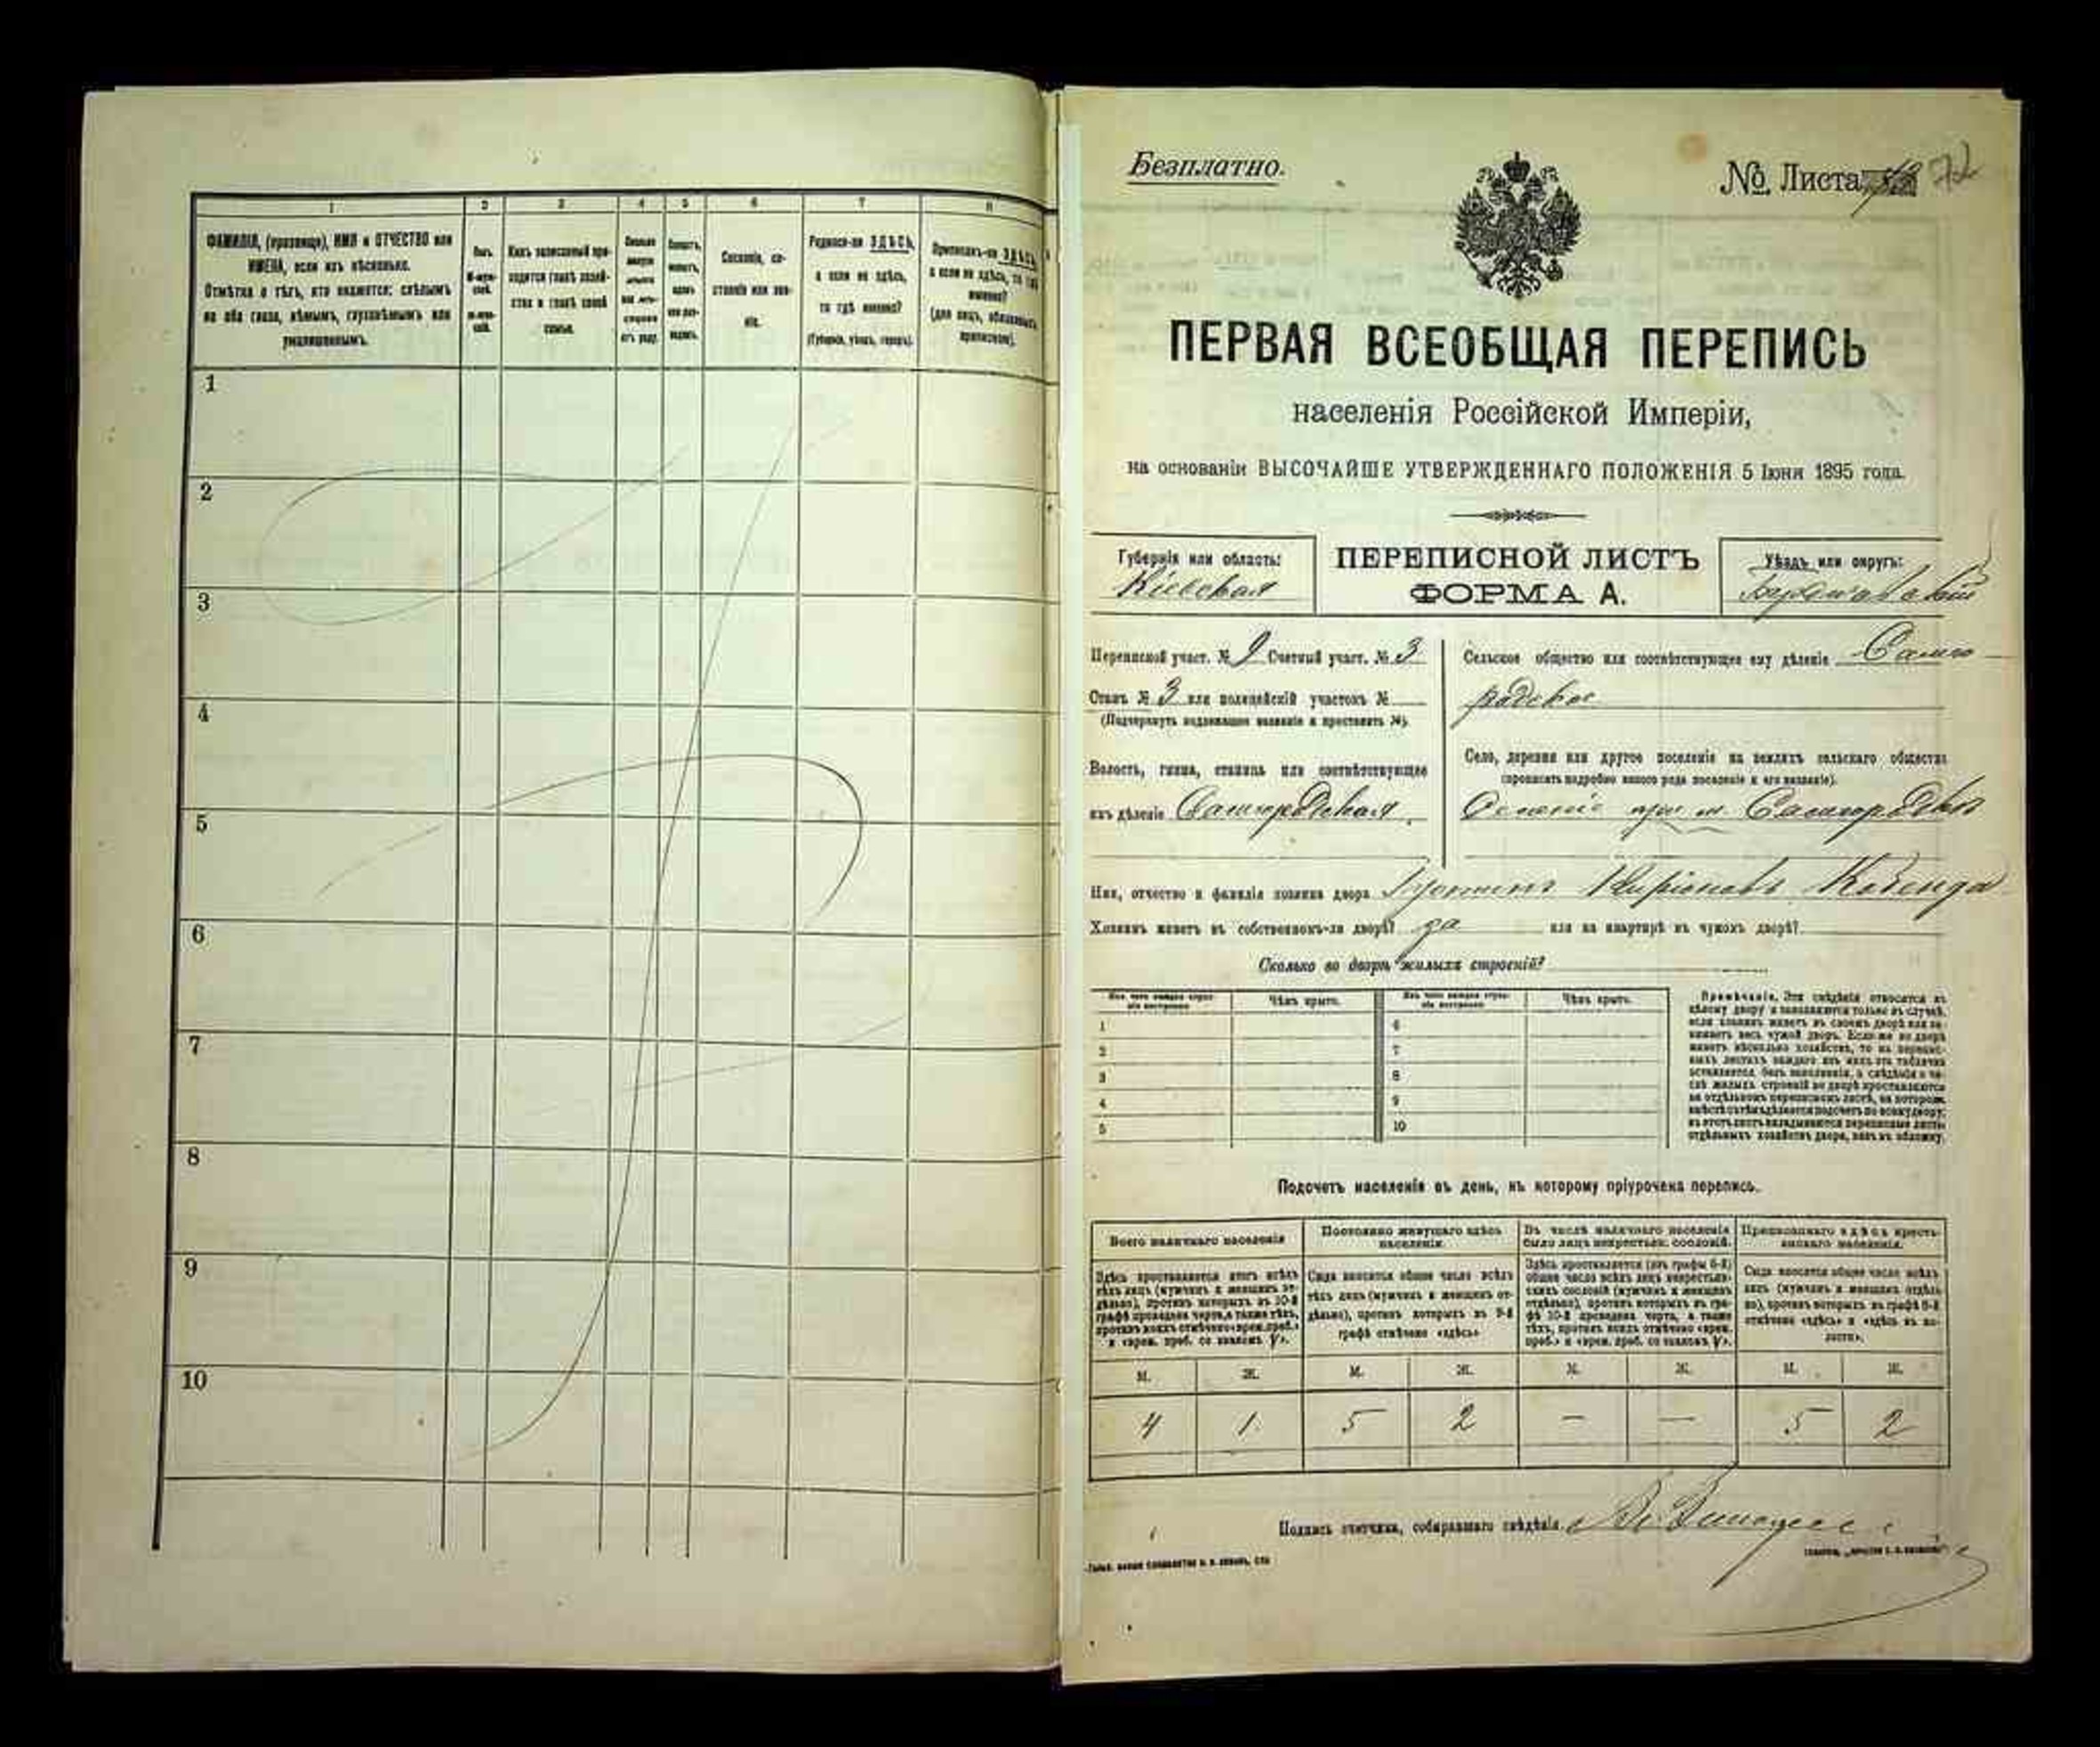 1 2 3 4 5 6 7 8
ФАМИЛІЯ, (прозвище), ИМЯ и ОТЧЕСТВО или
ИМЕНА, если ихъ нѣсколько.
Отмѣтка о тѣхъ, кто окажется: слѣпымъ
на оба глаза, нѣмымъ, глухонѣмымъ или
умалишеннымъ.
Полъ.
Какъ записанный при-
ходится главѣ хозяй-
ства и главѣ своей
семьи.
Сословіе, со-
стояніе или зва-
ніе.
Родился-ли ЗДѢСЬ,
а если не здѣсь,
то гдѣ именно?
(Губернія, уѣздъ, городъ).
Приписанъ-ли ЗДѢСЬ,
а если не здѣсь, то гдѣ
именно?
(для лицъ, обязанныхъ
припискою).
1
2
3
4
5
6
7
8
9
10
Безплатно.
№ Листа 72
ПЕРВАЯ ВСЕОБЩАЯ ПЕРЕПИСЬ
населенія Россійской Имперіи,
на основаніи ВЫСОЧАЙШЕ УТВЕРЖДЕННАГО ПОЛОЖЕНІЯ 5 Іюня 1895 года.
Губернія или область:
Кіевская
ПЕРЕПИСНОЙ ЛИСТЪ
ФОРМА А.
Уѣздъ или округъ:
Бердичевскій
Переписной участ. № 9 Счетный участ. № 3
Станъ № 3 или полицейскій участокъ №
(Подчеркнуть надлежащее названіе и проставить №).
Волость, гмина, станица или соотвѣтствующее
ихъ дѣленіе Самгородская
Сельское общество или соотвѣтствующее ему дѣленіе Самго-
родское
Село, деревня или другое поселеніе на земляхъ сельскаго общества
(прописать подробно какого рода поселеніе и его названіе).
Селеніе при м. Самгородкѣ
Имя, отчество и фамилія хозяина двора Кобенда
Хозяинъ живетъ въ собственномъ-ли дворѣ? да или на квартирѣ въ чужомъ дворѣ?
Сколько во дворѣ жилыхъ строеній?
Изъ чего каждое строе-
ніе построено
Чѣмъ крыто.
Изъ чего каждое строе-
ніе построено
Чѣмъ крыто.
1 6
2 7
3 8
4 9
5 10
Примѣчаніе. Эти свѣдѣнія относятся къ
цѣлому двору и заполняются только въ случаѣ,
если хозяинъ живетъ въ своемъ дворѣ или за-
нимаетъ весь чужой дворъ. Если же во дворѣ
живетъ нѣсколько хозяйствъ, то на перепис-
ныхъ листахъ каждаго изъ нихъ эта табличка
оставляется безъ заполненія, а свѣдѣнія о чи-
слѣ жилыхъ строеній во дворѣ проставляются
на отдѣльномъ переписномъ листѣ, на которомъ
вмѣстѣ съ тѣмъ дѣлается подсчетъ по всему двору;
въ этотъ листъ вкладываются переписные листы
отдѣльныхъ хозяйствъ двора, какъ въ обложку.
Подсчетъ населенія въ день, къ которому пріурочена перепись.
Всего наличнаго населенія
Постоянно живущаго здѣсь
населенія.
Въ числѣ наличнаго населенія
было лицъ некрестьян. сословій.
Приписаннаго здѣсь кресть-
янскаго населенія.
Здѣсь проставляется итогъ всѣхъ
тѣхъ лицъ (мужчинъ и женщинъ от-
дѣльно), противъ которыхъ въ 10-й
графѣ проведена черта, а также тѣхъ,
противъ коихъ отмѣчено «врем. преб.»
и «врем. преб. со знакомъ V».
Сюда вносится общее число всѣхъ
тѣхъ лицъ (мужчинъ и женщинъ от-
дѣльно), противъ которыхъ въ 9-й
графѣ отмѣчено «здѣсь»
Здѣсь проставляется (изъ графы 6-й)
общее число всѣхъ лицъ некрестьян-
скихъ сословій (мужчинъ и женщинъ
отдѣльно), противъ которыхъ въ гра-
фѣ 10-й проведена черта, а также
тѣхъ, противъ коихъ отмѣчено «врем.
преб.» и «врем. преб. со знакомъ V».
Сюда вносится общее число всѣхъ
лицъ (мужчинъ и женщинъ отдѣль-
но), противъ которыхъ въ графѣ 8-й
отмѣчено «здѣсь» и «здѣсь въ во-
лости».
М. Ж. М. Ж. М. Ж. М. Ж.
4 1 5 2 — — 5 2
Подпись счетчика, собиравшаго свѣдѣнія